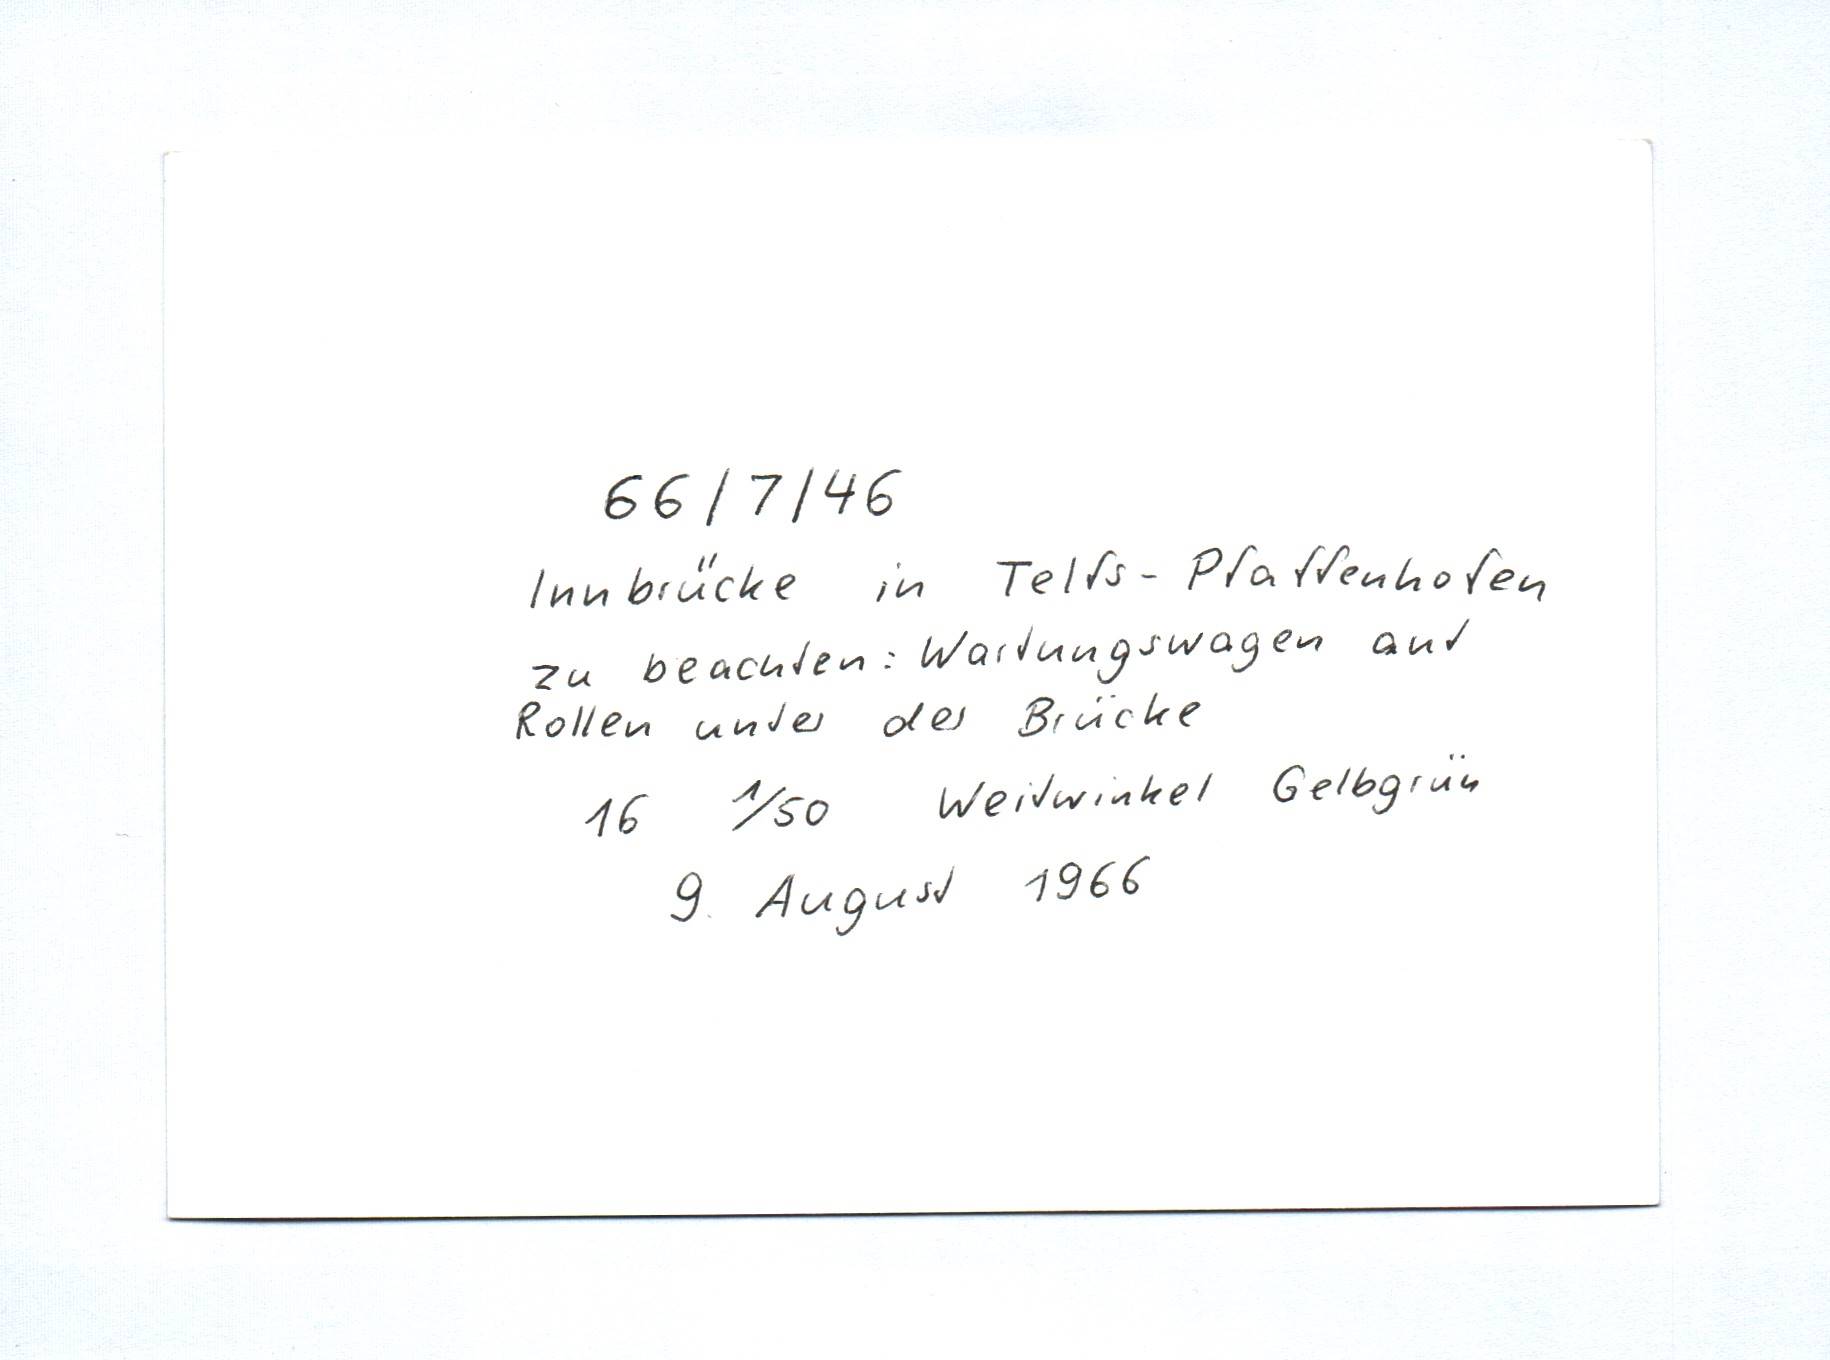 66/7/46
Innbrücke in Telfs-Pfaffenhofen
zu beachten: Wartungswagen auf
Rollen unter der Brücke
16 1/50 Weitwinkel Gelbgrün
9. August 1966